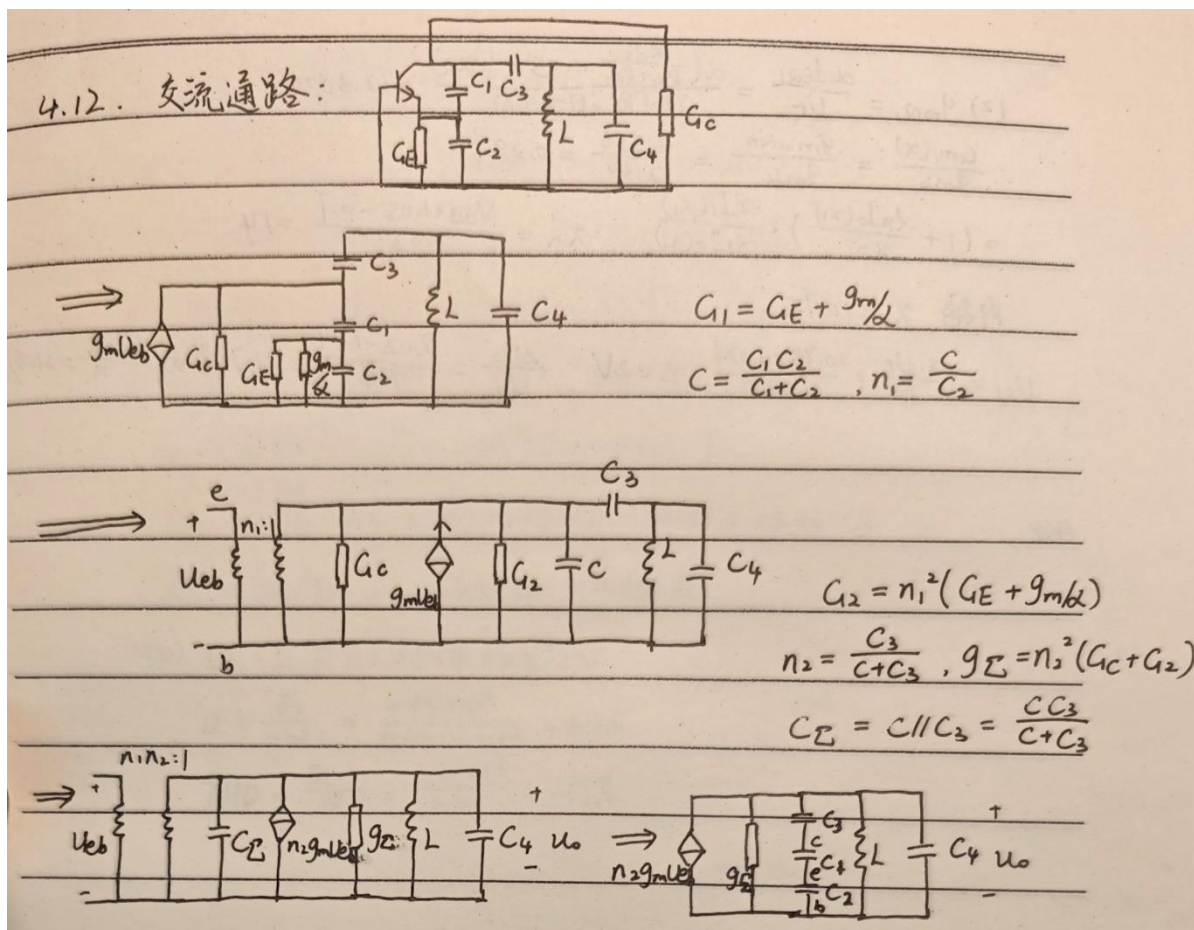 4.12. 交流通路:
C1
C3
GE
C2
L
C4
Gc
gmUeb
Gc
GE
gm/α
C3
C1
C2
L
C4
G1 = GE + gm/α
C = C1C2/(C1+C2) , n1 = C/C2
e
+
n1:1
Ueb
b
Gc
gmUeb
G2
C
C3
L
C4
G2 = n1²(GE + gm/α)
n2 = C3/(C+C3) , gΣ = n2²(Gc + G2)
CΣ = C//C3 = CC3/(C+C3)
n1n2:1
+
Ueb
-
CΣ
n2gmUeb
gΣ
L
C4
+
uo
-
n2gmUeb
gΣ
C3
c
C1
e
C2
b
L
C4
+
uo
-